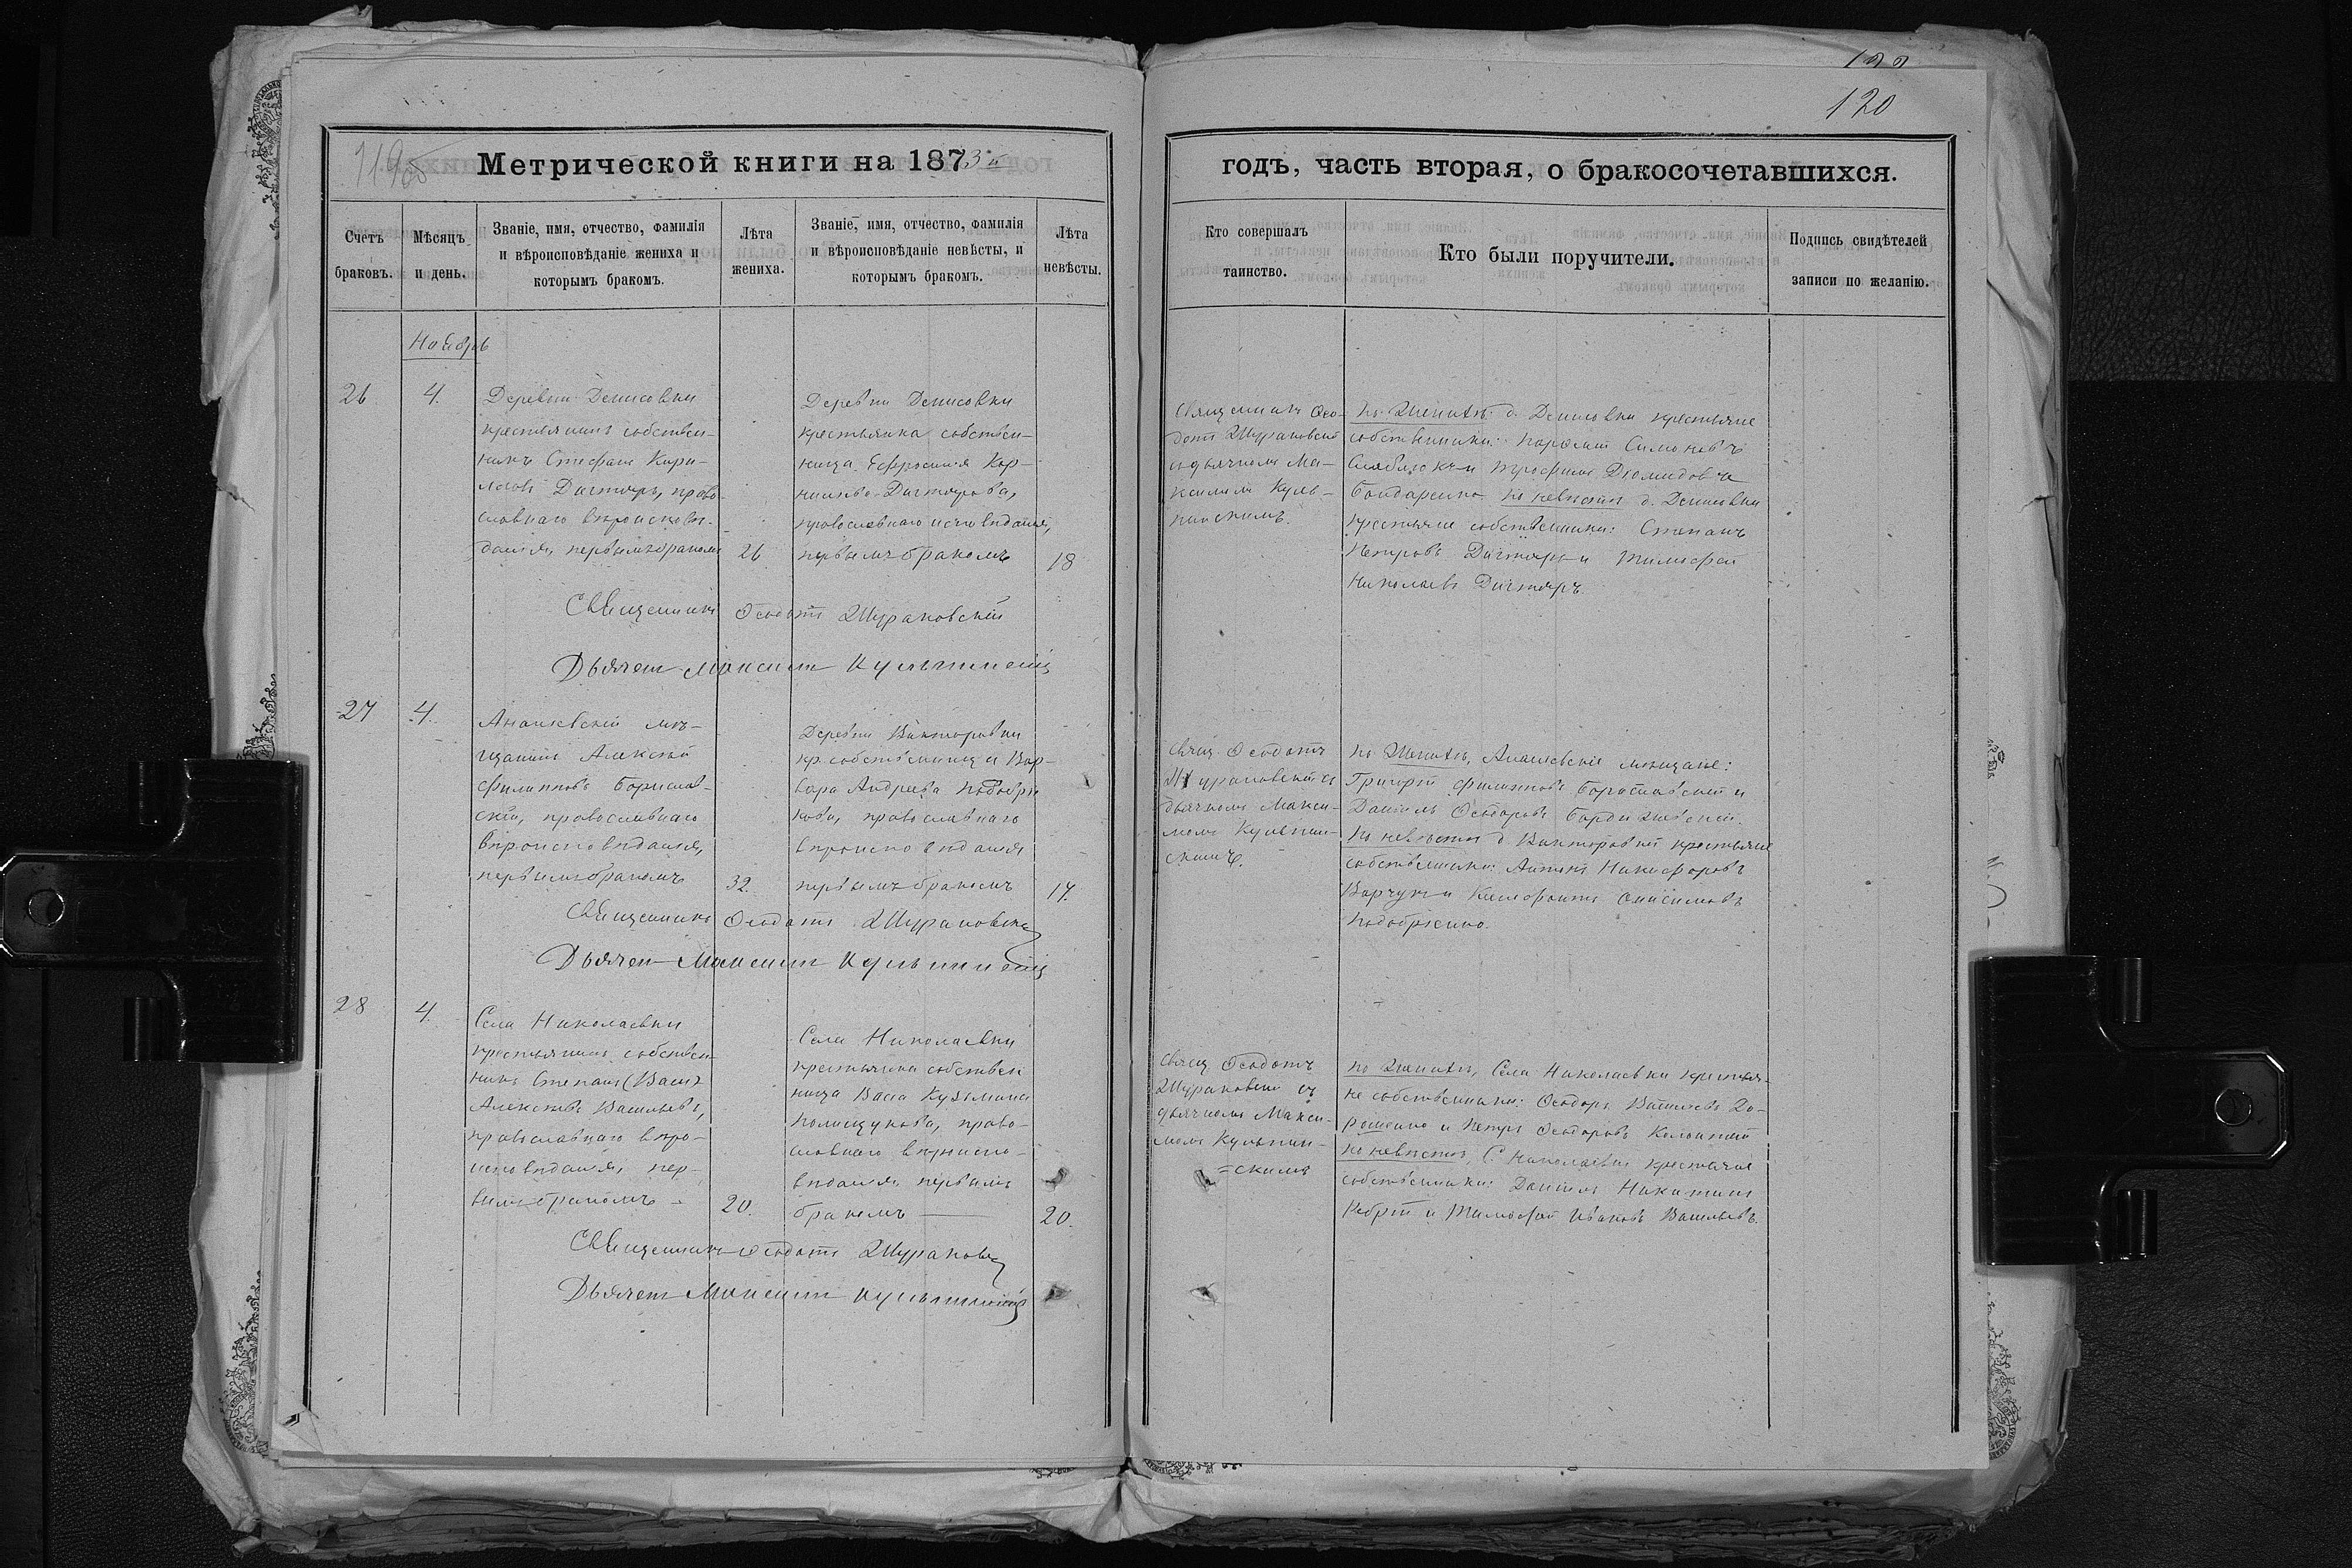 120
Метрической книги на 1873й
годъ, часть вторая, о бракосочетавшихся.
Счетъ браковъ.
Мѣсяцъ и день.
Званіе, имя, отчество, фамилія
и вѣроисповѣданіе жениха и
которымъ бракомъ.
Лѣта жениха.
Званіе, имя, отчество, фамилія
и вѣроисповѣданіе невѣсты, и
которымъ бракомъ.
Лѣта невѣсты.
Кто совершалъ
таинство.
Кто были поручители.
Подпись свидѣтелей
записи по желанію.
Ноябрь
26
4.
Деревни Денисовки
крестьянинъ собствен-
никъ Стефанъ Кири-
ловъ Дигтяръ, право-
славнаго вѣроисповѣ-
данія, первымъ бракомъ
26
Деревни Денисовки
крестьянка собствен-
ница Ефросинія Кор-
ниліева Дигтярова,
православнаго исповѣданія,
первымъ бракомъ
18
Священникъ Ѳео-
дотъ Жураковскій
съ дьячкомъ Ма-
ксимомъ Куль-
пинскимъ.
По женихѣ: д. Денисовки крестьяне
собственники:
Бондаренко по невѣстѣ д. Денисовки
крестьяне собственники: Степанъ
Петровъ Дигтяръ и Тимофей
Николаевъ Дигтяръ.
Священникъ Ѳеодотъ Жураковскій
Дьячекъ Максимъ Кульпинскій
27
4.
Ананьевскій мѣ-
щанинъ Алексѣй
Филиповъ Борислав-
скій, православнаго
вѣроисповѣданія,
первымъ бракомъ
32.
Деревни Викторовки
кр. собственница Вар-
вара Андреева Подобрѣ-
нкова, православнаго
вѣроисповѣданія
первымъ бракомъ
17.
Свящ. Ѳеодотъ
Жураковскій съ
дьячкомъ Макси-
момъ Кульпин-
скимъ.
По женихѣ, Ананьевскіе мѣщане:
Григорій Филиповъ Бориславскій и
Даніилъ Ѳеодоровъ Бардижевскій.
По невѣстѣ д. Викторовки крестьяне
собственники: Антонъ Никифоровъ
Варчукъ и Ксенофонтъ Онисимовъ
Подобріенко.
Священникъ Ѳеодотъ Жураковскій
Дьячекъ Максимъ Кульпинскій
28
4.
Села Николаевки
крестьянинъ собствен-
никъ Степанъ (Васил
Алексѣевъ Васильевъ,
православнаго вѣро-
исповѣданія, пер-
вымъ бракомъ
20.
Села Николаевки
крестьянка собствен
ница Васса Кузьмина
Полищукова, право-
славнаго вѣроиспо-
вѣданія, первымъ
бракомъ
20.
Свящ Ѳеодотъ
Жураковскій съ
дьячкомъ Макси-
момъ Кульпин-
=скимъ
По женихѣ, Села Николаевки крестья-
не собственники: Ѳеодоръ Васильевъ До-
рошенко и Петръ Ѳеодоровъ
По невѣстѣ, С. Николаевки крестьяне
собственники: Даніилъ Никитинъ
и Тимофей Ивановъ Васильевъ.
Священникъ Ѳеодотъ Жураковскій
Дьячекъ Максимъ Кульпинскій